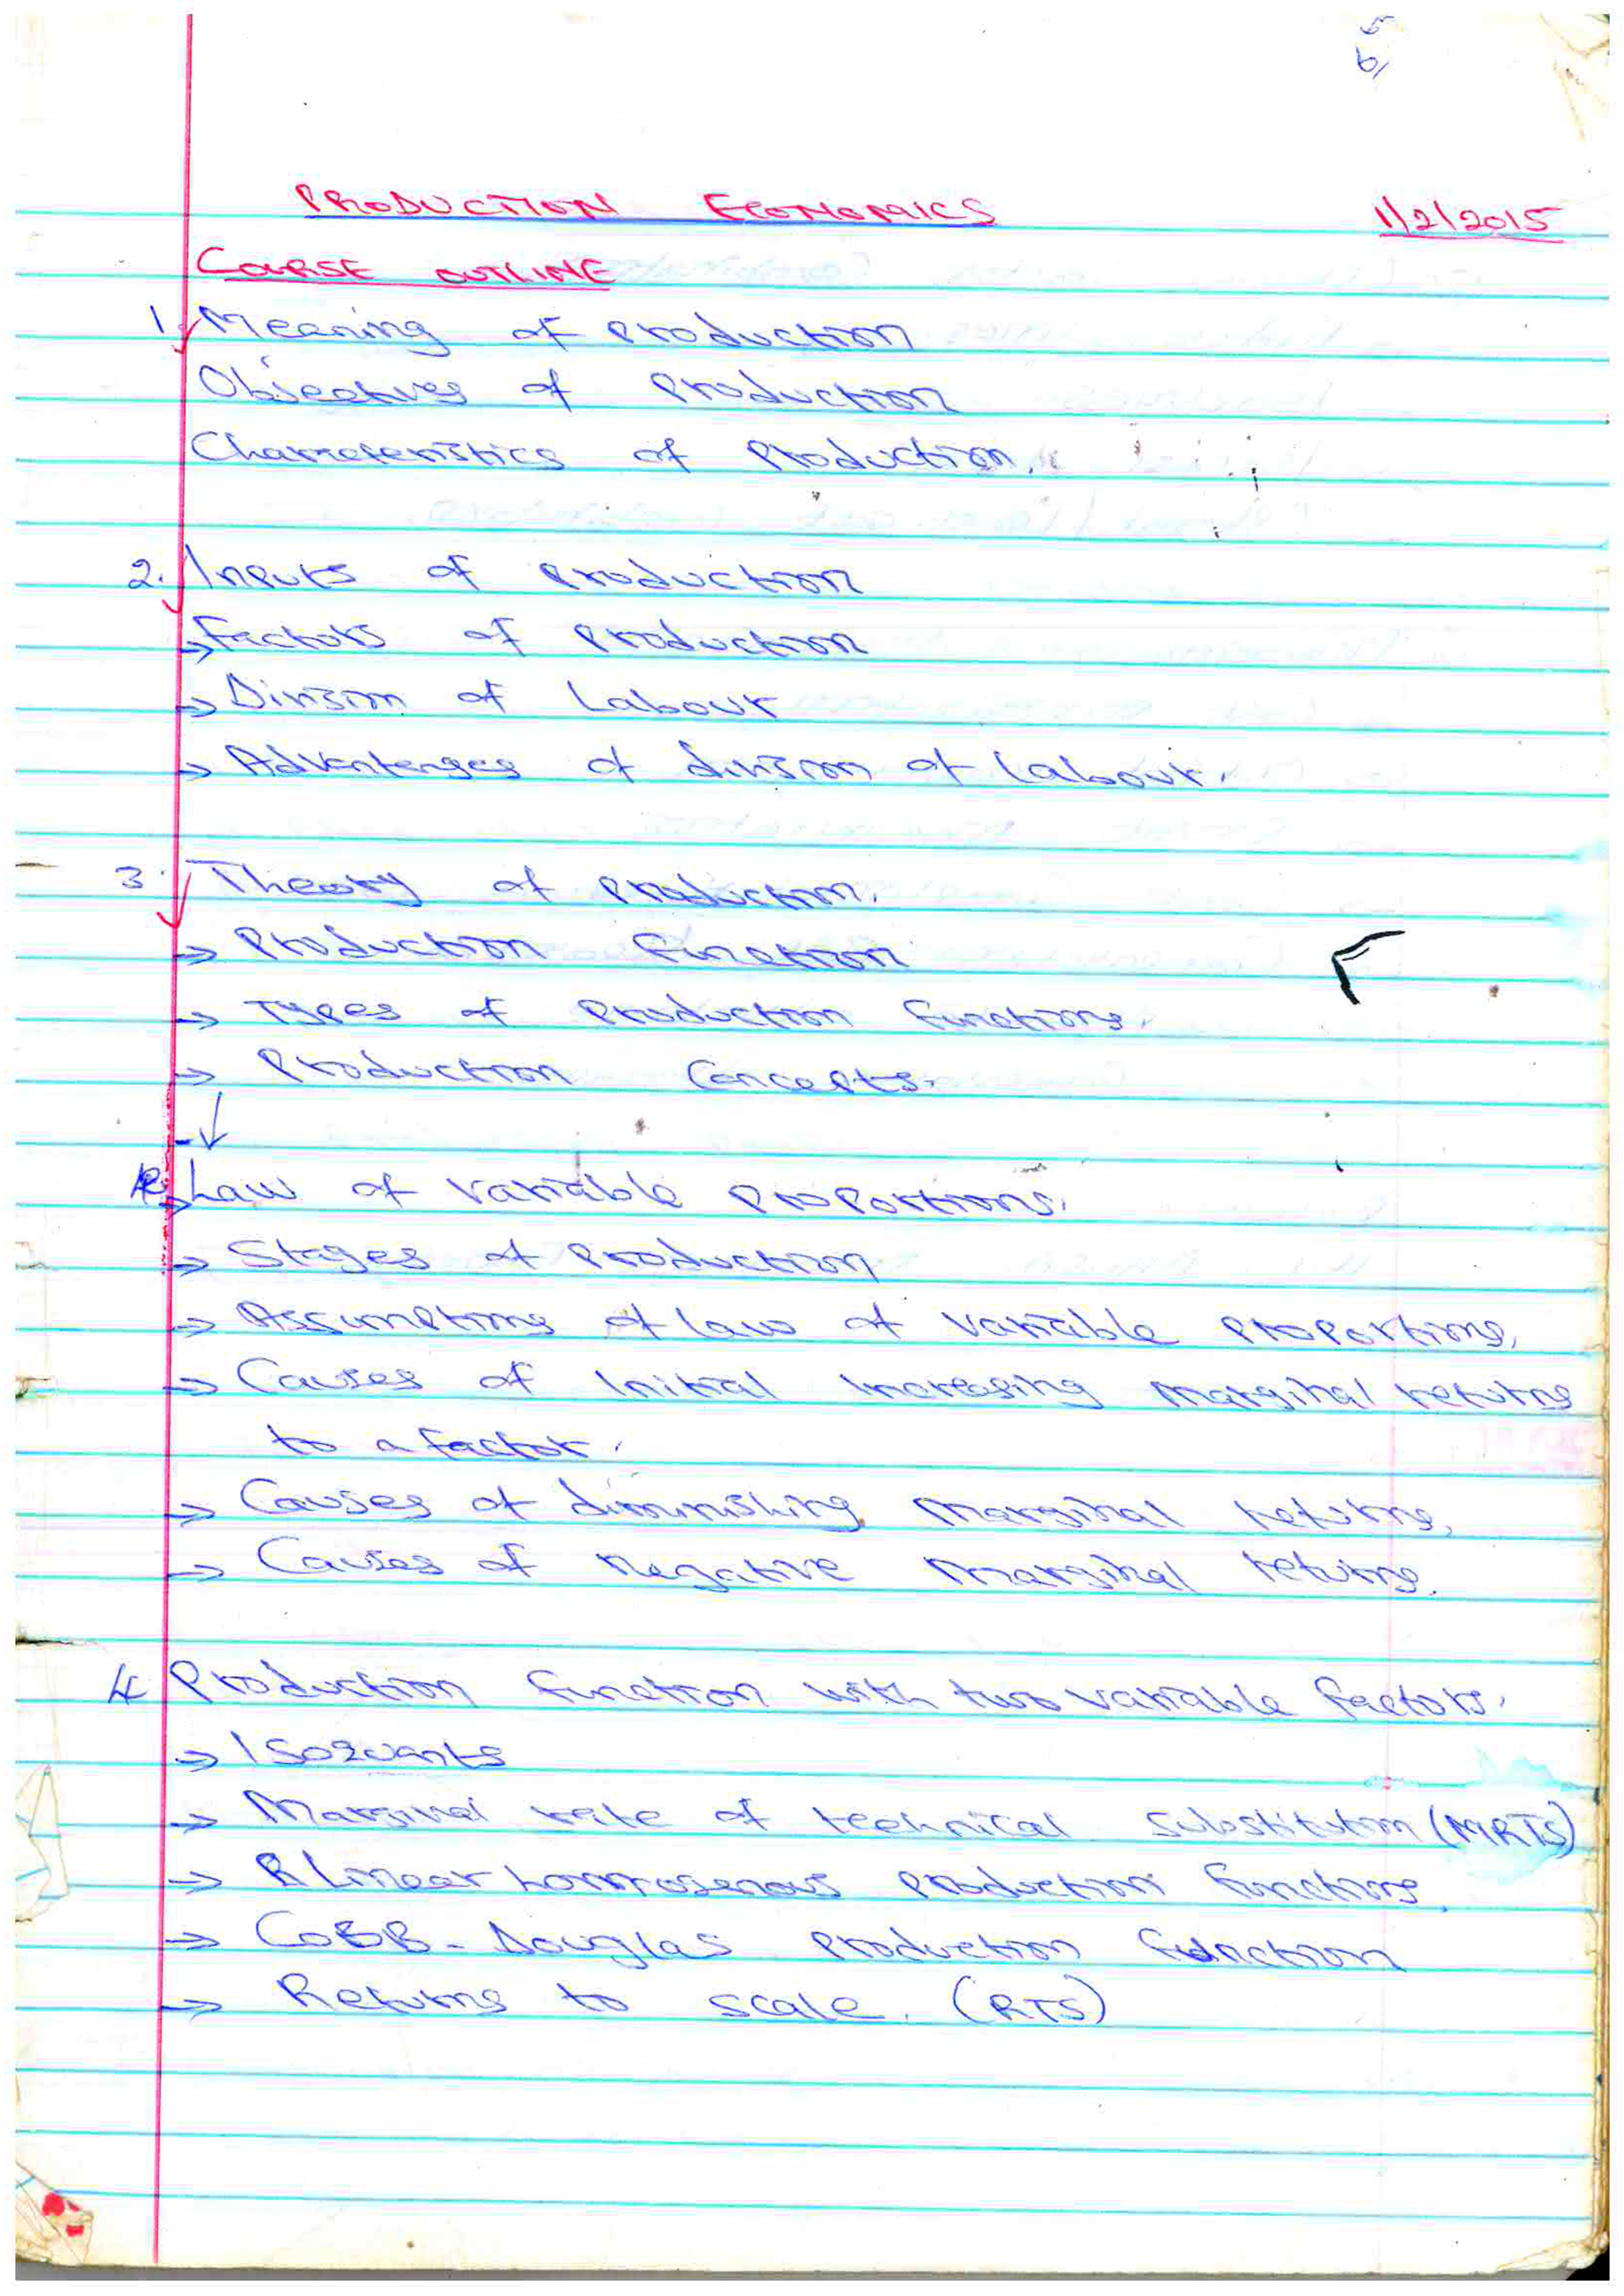 PRODUCTION ECONOMICS 1/2/2015
COURSE OUTLINE
1. Meaning of Production
Objectives of Production
Characteristics of Production.
2. Inputs of Production
→ Factors of Production
→ Division of Labour
→ Advantages of division of labour.
3. Theory of Production.
→ Production Function
→ Types of Production functions.
→ Production Concepts.
→ Law of variable proportions.
→ Stages of Production
→ Assumptions of law of variable proportions.
→ Causes of Initial Increasing marginal returns
to a factor.
→ Causes of diminishing marginal returns.
→ Causes of Negative Marginal returns.
4 Production function with two variable factors.
→ Isoquants
→ Marginal rate of technical substitution (MRTS)
→ Linear homogenous production functions
→ COBB-Douglas production function
→ Returns to scale. (RTS)